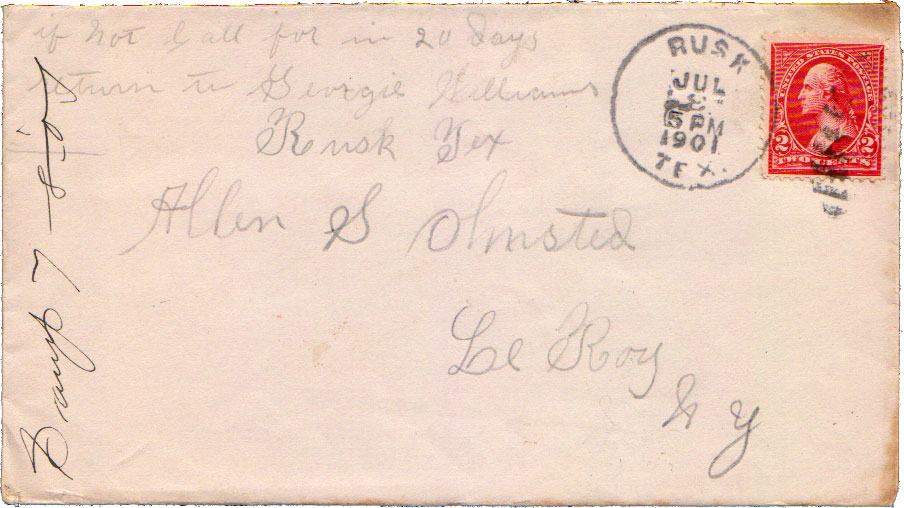 if not Call for in 20 days
return to Georgie Williams
Rusk Tex
RUSK
JUL
5 PM
1901
TEX.
UNITED STATES POSTAGE
2 2
TWO CENTS
Allen S Olmsted
Le Roy
N Y
7-8-01